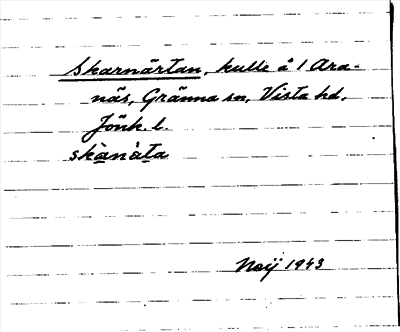 Skarnärtan, kulle å 1 Ara-
näs, Gränna sn, Vista hd,
Jönk. l.
skànàta
Noij 1943